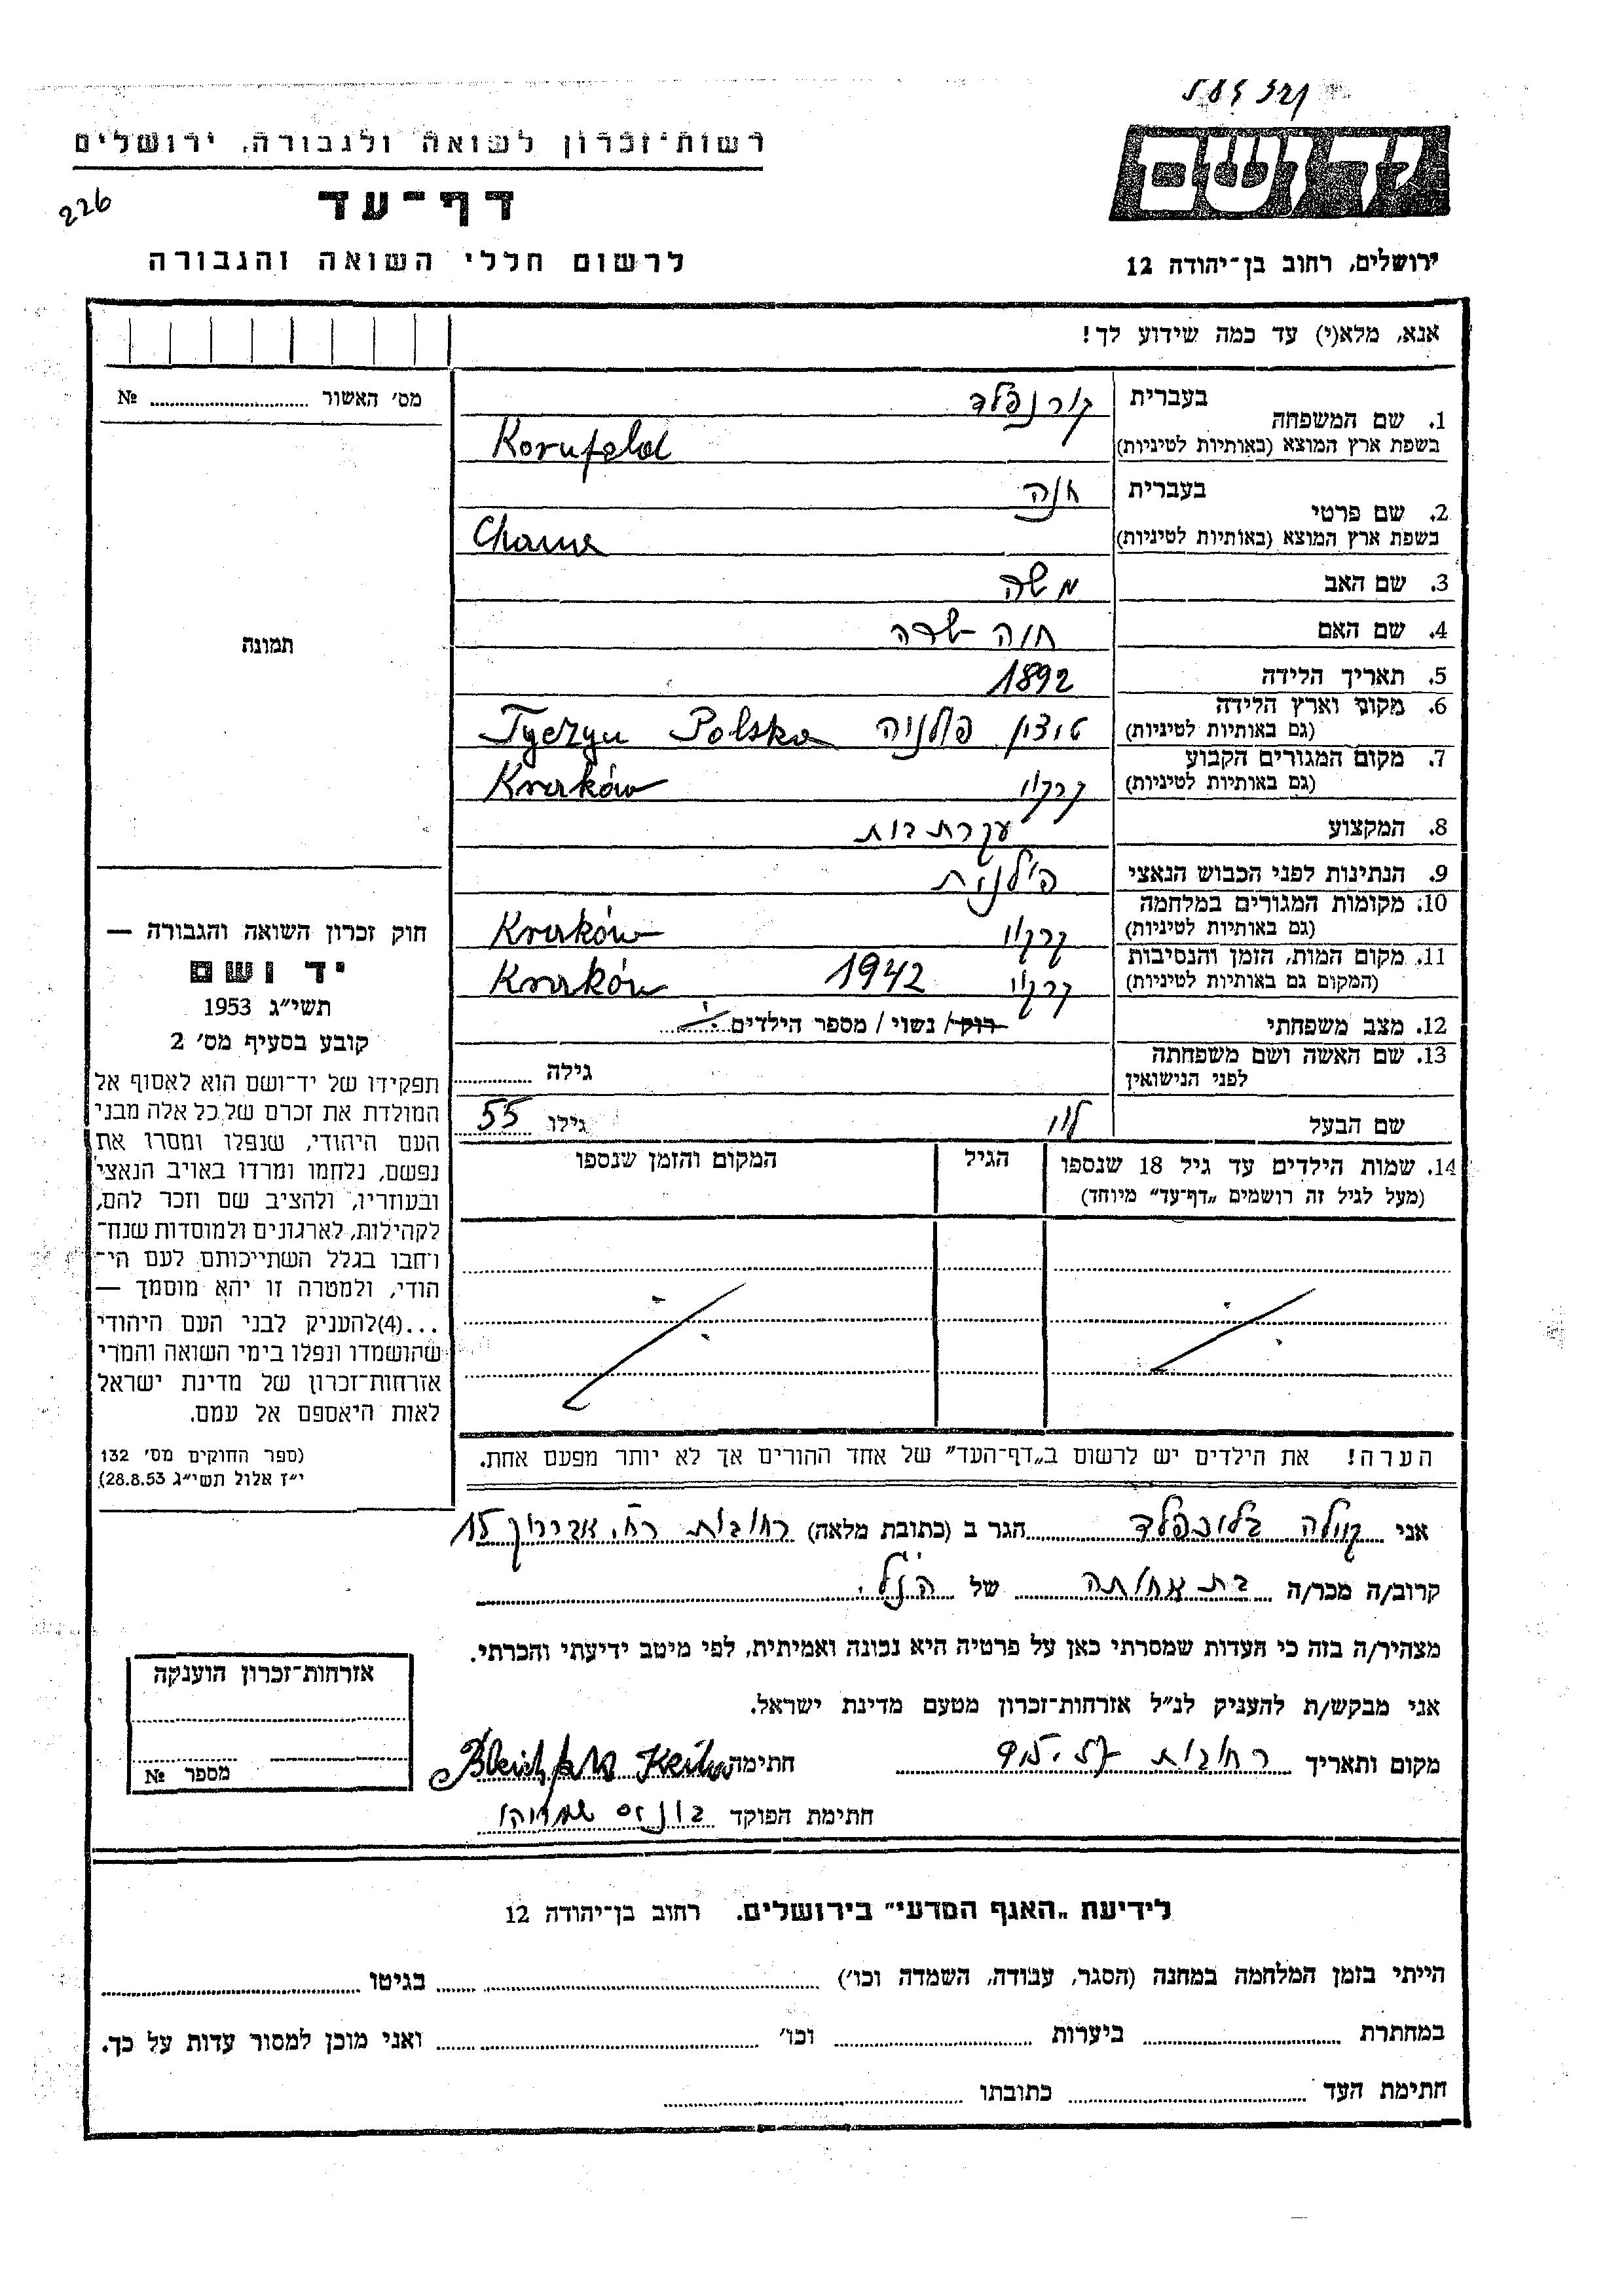 רשות־זכרון לשואה ולגבורה, ירושלים
ידושם
226
דף־עד
לרשום חללי השואה והגבורה
ירושלים, רחוב בן־יהודה 12
אנא, מלא(י) עד כמה שידוע לך!
מס׳ האשור № 
1. שם המשפחה בעברית קורנפלד
בשפת ארץ המוצא (באותיות לטיניות) Kornfeld
2. שם פרטי בעברית חנה
בשפת ארץ המוצא (באותיות לטיניות) Chana
3. שם האב משה
4. שם האם חוה שרה
תמונה
5. תאריך הלידה 1892
6. מקום וארץ הלידה
(גם באותיות לטיניות) פולניה Tyczyn Polska
7. מקום המגורים הקבוע
(גם באותיות לטיניות) קרקוו Kraków
8. המקצוע עקרת בית
9. הנתינות לפני הכבוש הנאצי פולנית
10. מקומות המגורים במלחמה
(גם באותיות לטיניות) קרקוו Kraków
11. מקום המות, הזמן והנסיבות
(המקום גם באותיות לטיניות) קרקוו 1942 Kraków
12. מצב משפחתי רוק/ נשוי/ מספר הילדים
13. שם האשה ושם משפחתה
לפני הנישואין גילה
שם הבעל לוי גילו 55
14. שמות הילדים עד גיל 18 שנספו הגיל המקום והזמן שנספו
(מעל לגיל זה רושמים „דף־עד” מיוחד)
חוק זכרון השואה והגבורה —
יד ושם
תשי״ג 1953
קובע בסעיף מס׳ 2
תפקידו של יד־ושם הוא לאסוף אל
המולדת את זכרם של כל אלה מבני
העם היהודי, שנפלו ומסרו את
נפשם, נלחמו ומרדו באויב הנאצי
ובעוזריו, ולהציב שם וזכר להם,
לקהילות, לארגונים ולמוסדות שנח־
רחבו בגלל השתייכותם לעם הי־
הודי, ולמטרה זו יהא מוסמך —
...(4)להעניק לבני העם היהודי
שהושמדו ונפלו בימי השואה והמרי
אזרחות־זכרון של מדינת ישראל
לאות היאספם אל עמם.
(ספר החוקים מס׳ 132
י״ז אלול תשי״ג 28.8.53)
הערה! את הילדים יש לרשום ב„דף־העד” של אחד ההורים אך לא יותר מפעם אחת.
אני הגר ב (כתובת מלאה) רחובות רח׳ 15
קרוב/ה מכר/ה בת אחותה של הנ״ל.
מצהיר/ה בזה כי העדות שמסרתי כאן על פרטיה היא נכונה ואמיתית, לפי מיטב ידיעתי והכרתי.
אני מבקש/ת להעניק לנ״ל אזרחות־זכרון מטעם מדינת ישראל.
מקום ותאריך רחובות חתימה
חתימת הפוקד
אזרחות־זכרון הוענקה
מספר №
לידיעת „האגף המדעי” בירושלים. רחוב בן־יהודה 12
הייתי בזמן המלחמה במחנה (הסגר, עבודה, השמדה וכו׳) בגיטו
במחתרת ביערות וכו׳ ואני מוכן למסור עדות על כך.
חתימת העד כתובתו